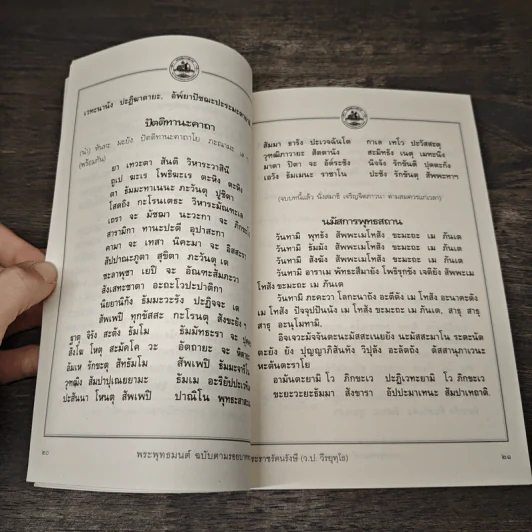 เวทะนานัง ปะฏิฆาตายะ, อัพ๎ยาปัชฌะปะระมะตายาติ
ปัตติทานะคาถา
(นำ) หันทะ มะยัง ปัตติทานะคาถาโย ภะณามะ เส
(พร้อมกัน)
ยา เทวะตา สันติ วิหาระวาสินี
ถูเป ฆะเร โพธิฆะเร ตะหิง ตะหิง
ตา ธัมมะทาเนนะ ภะวันตุ ปูชิตา
โสตถิง กะโรนเตธะ วิหาระมัณฑะเล
เถรา จะ มัชฌา นะวะกา จะ ภิกขะโว
สารามิกา ทานะปะตี อุปาสะกา
คามา จะ เทสา นิคะมา จะ อิสสะรา
สัปปาณะภูตา สุขิตา ภะวันตุ เต
ชะลาพุชา เยปิ จะ อัณฑะสัมภะวา
สังเสทะชาตา อะถะโวปะปาติกา
นิยยานิกัง ธัมมะวะรัง ปะฏิจจะ เต
สัพเพปิ ทุกขัสสะ กะโรนตุ สังขะยัง ฯ
ฐาตุ จิรัง สะตัง ธัมโม ธัมมัทธะรา จะ
สังโฆ โหตุ สะมัคโค วะ อัตถายะ จะ
อัมเห รักขะตุ สัทธัมโม สัพเพปิ ธัมมะจาริโน
วุฑฒิง สัมปาปุเณยยามะ ธัมเม อะริยัปปะเวทิเต
ปะสันนา โหนตุ สัพเพปิ ปาณิโน พุทธะสาสะเน
๒๐
พระพุทธมนต์ ฉบับตามรอยบาทพระราชรัตนรังษี (ว.ป. วีรยุทฺโธ)
สัมมา ธารัง ปะเวจฉันโต กาเล เทโว ปะวัสสะตุ
วุฑฒิภาวายะ สัตตานัง สะมิทธัง เนตุ เมทะนิง
มาตา ปิตา จะ อัต๎ระชัง นิจจัง รักขันติ ปุตตะกัง
เอวัง ธัมเมนะ ราชาโน ปะชัง รักขันตุ สัพพะทาฯ
(จบบทนี้แล้ว นั่งสมาธิ เจริญจิตภาวนา ตามสมควรแก่เวลา)
นมัสการพุทธสถาน
วันทามิ พุทธัง สัพพะเมโทสัง ขะมะถะ เม ภันเต
วันทามิ ธัมมัง สัพพะเมโทสัง ขะมะถะ เม ภันเต
วันทามิ สังฆัง สัพพะเมโทสัง ขะมะถะ เม ภันเต
วันทามิ อาราเม พัทธะสีมายัง โพธิรุกขัง เจติยัง สัพพะเม
โทสัง ขะมะถะ เม ภันเต
วันทามิ ภะคะวา โลกะนาถัง อะตีตัง เม โทสัง อะนาคะตัง
เม โทสัง ปัจจุปปันนัง เม โทสัง ขะมะถะ เม ภันเต, สาธุ สาธุ
สาธุ อะนุโมทามิ.
อิจเจวะมัจจันตะนะมัสสะเนยยัง นะมัสสะมาโน ระตะนัต
ตะยัง ยัง ปุญญาภิสันทัง วิปุลัง อะลัตถัง ตัสสานุภาเวนะ
หะตันตะราโย
อามันตะยามิ โว ภิกขะเว ปะฏิเวทะยามิ โว ภิกขะเว
ขะยะวะยะธัมมา สังขารา อัปปะมาเทนะ สัมปาเทถาติ.
๒๑